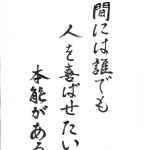 間には誰でも
人を喜ばせたい
本能がある